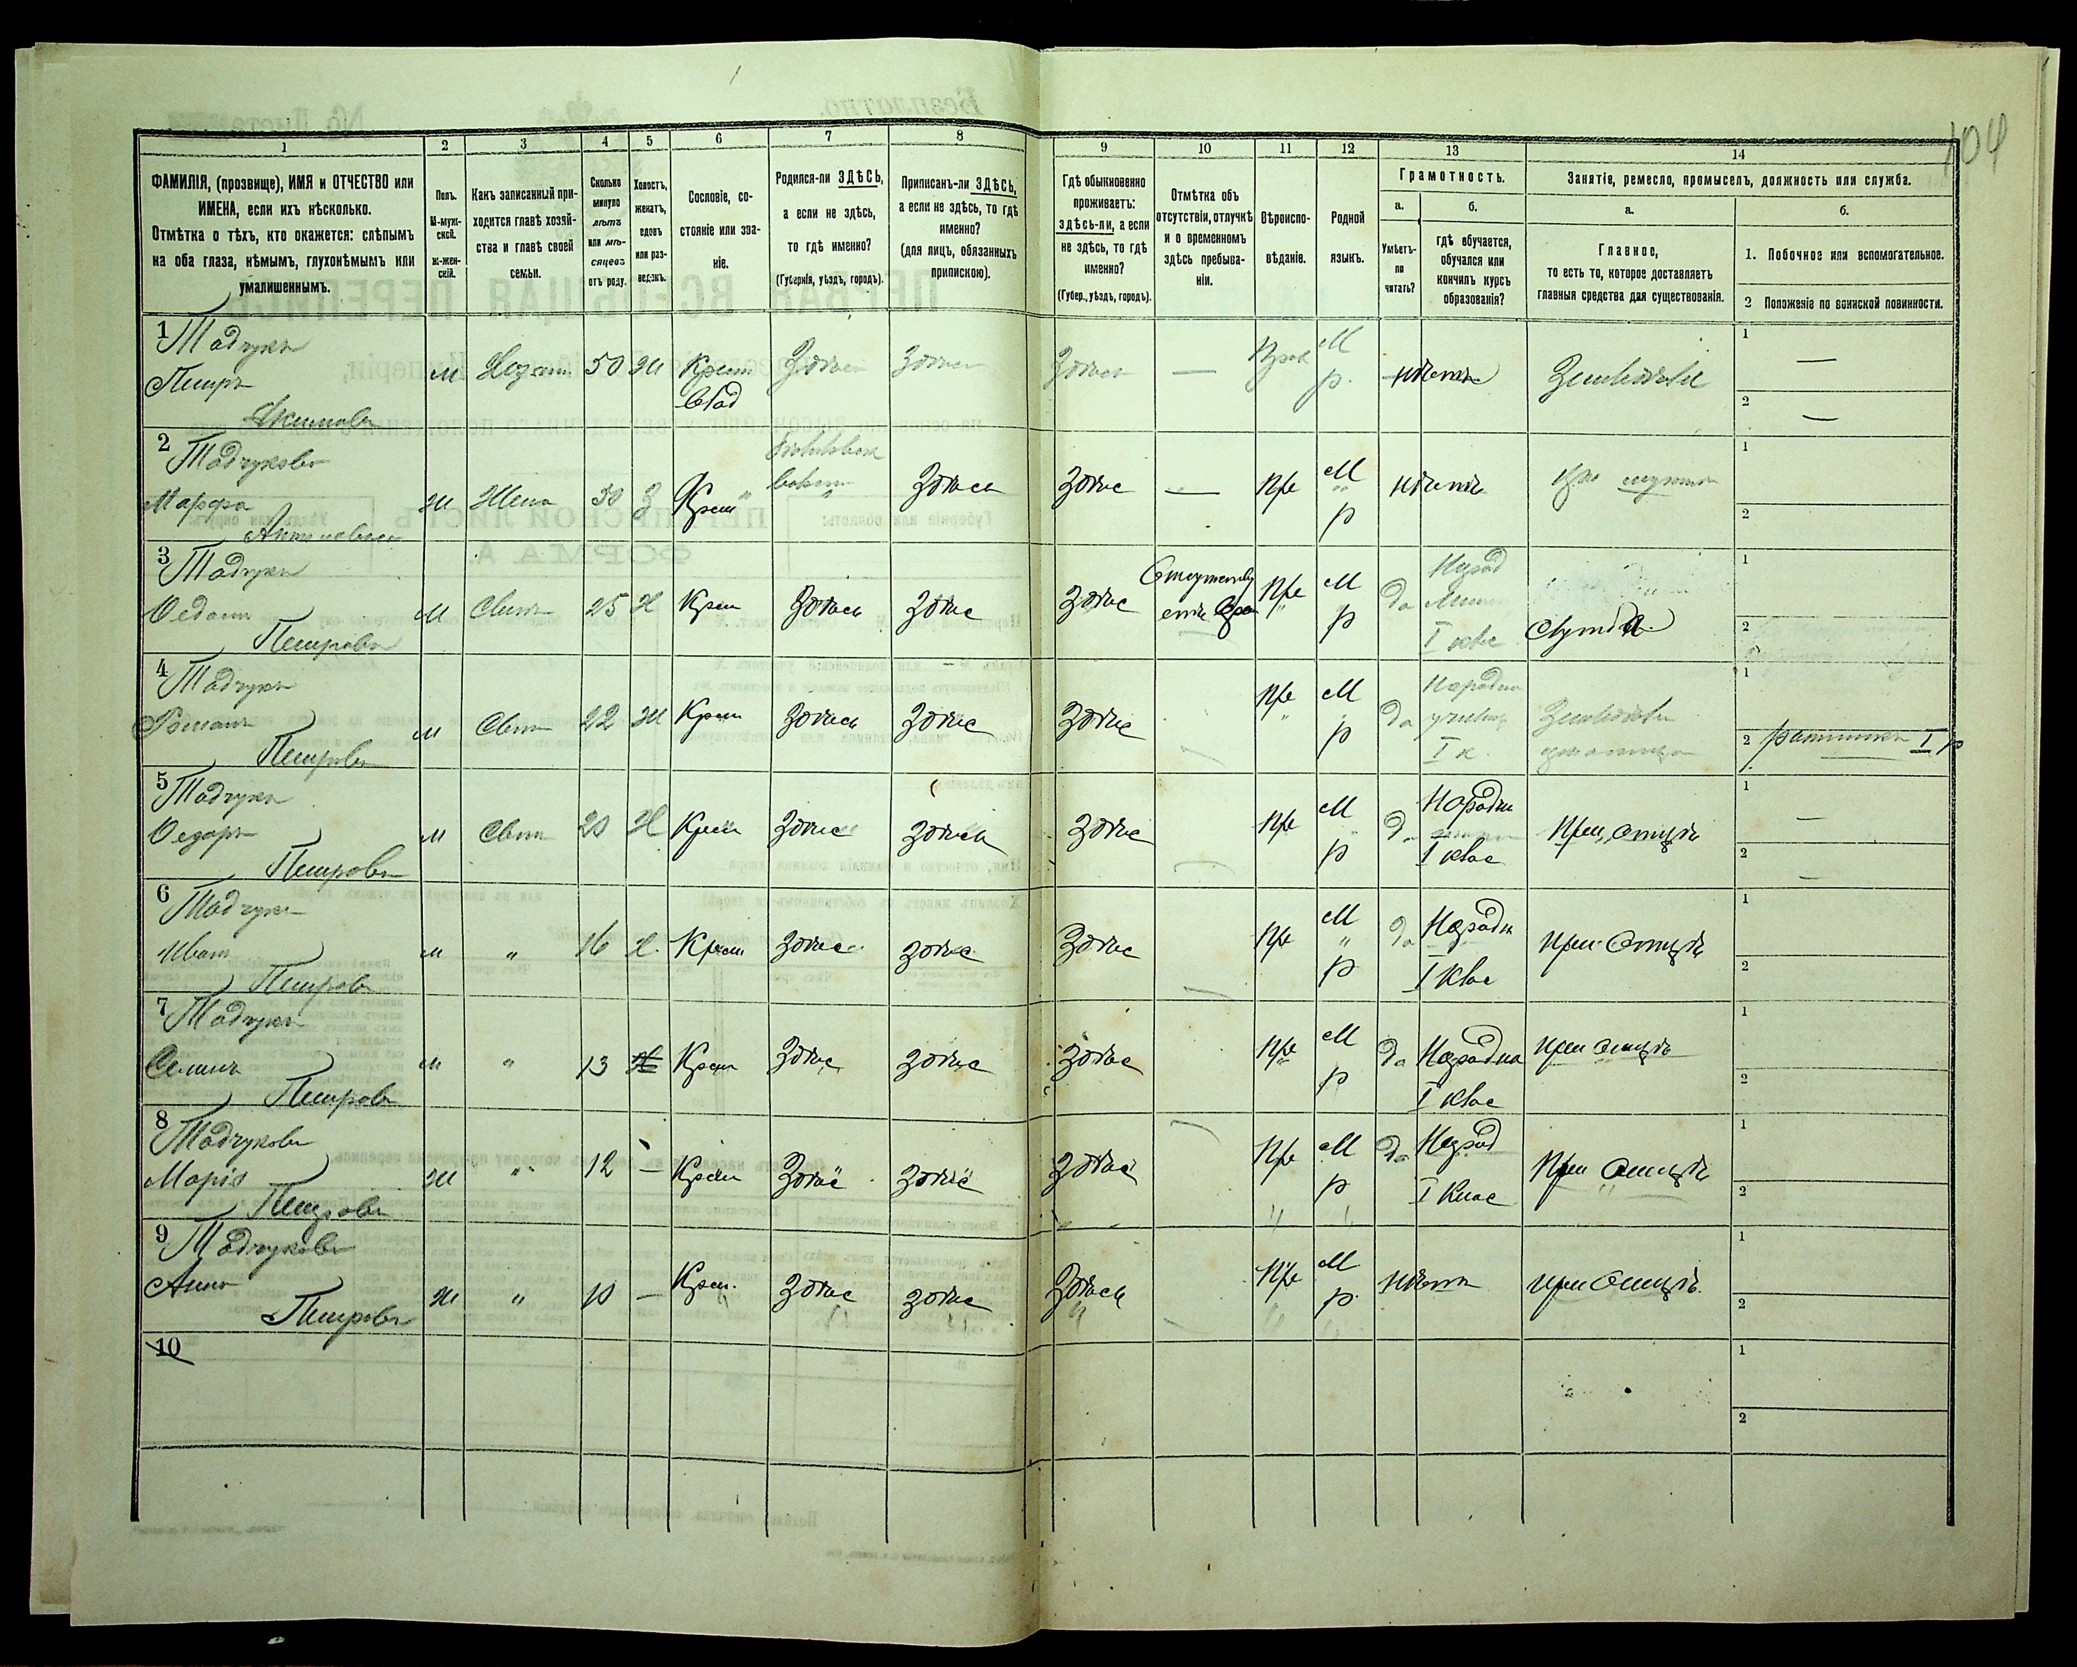 104
1 2 3 4 5 6 7 8 9 10 11 12 13 14
ФАМИЛІЯ, (прозвище), ИМЯ и ОТЧЕСТВО или
ИМЕНА, если ихъ нѣсколько.
Отмѣтка о тѣхъ, кто окажется: слѣпымъ
на оба глаза, нѣмымъ, глухонѣмымъ или
умалишеннымъ.
Полъ.
М-муж-
ской.
Ж-жен-
скій.
Какъ записанный при-
ходится главѣ хозяй-
ства и главѣ своей
семьи.
Сколько
минуло
лѣтъ
или мѣ-
сяцевъ
отъ роду.
Холостъ,
женатъ,
вдовъ
или раз-
веденъ.
Сословіе, со-
стояніе или зва-
ніе.
Родился-ли ЗДѢСЬ,
а если не здѣсь,
то гдѣ именно?
(Губернія, уѣздъ, городъ).
Приписанъ-ли ЗДѢСЬ,
а если не здѣсь, то гдѣ
именно?
(для лицъ, обязанныхъ
припискою).
Гдѣ обыкновенно
проживаетъ:
здѣсь-ли, а если
не здѣсь, то гдѣ
именно?
(Губер., уѣздъ, городъ).
Отмѣтка объ
отсутствіи, отлучкѣ
и о временномъ
здѣсь пребыва-
ніи.
Вѣроиспо-
вѣданіе.
Родной
языкъ.
Грамотность.
а.
Умѣетъ-
ли
читать?
б.
гдѣ обучается,
обучался или
кончилъ курсъ
образованія?
Занятіе, ремесло, промыселъ, должность или служба.
а.
Главное,
то есть то, которое доставляетъ
главныя средства для существованія.
б.
1. Побочное или вспомогательное.
2 Положеніе по воинской повинности.
1 Тадчукъ
Петръ
Якимовъ
м 50 ж Крест Здѣсь Здѣсь Здѣсь — М р. нѣтъ Земледѣліе
1 —
2 —
2 Тадчукова
Марфа
ж Жена 50 З Крест Здѣсь Здѣсь — Пра М р нѣтъ
1
2
3 Тадчукъ
Петровъ
м Сынъ 25 Х Крест Здѣсь Здѣсь Здѣсь Пра М р да Народ
I клас
1
2
4 Тадчукъ
Романъ
Петровъ
м Сынъ 22 ж Крест Здѣсь Здѣсь Здѣсь Пра М р да Народн
училищ
I к.
1
2 ратникъ I р
5 Тадчукъ
Ѳедоръ
Петровъ
м Сынъ 20 Х Крест Здѣсь Здѣсь Здѣсь Пра М р Народн
I клас
при отцѣ
1 —
2 —
6 Тадчукъ
Иванъ
Петровъ
м " 16 Х. Крест Здѣсь Здѣсь Здѣсь Пра М " р да Народн
I клас
при отцѣ
1
2
7 Тадчукъ
Семенъ
Петровъ
м " 13 Крест Здѣсь Здѣсь Здѣсь Пра М р да Народна
I клас
при отцѣ
1
2
8 Тадчукова
Марія
Петрова
ж " 12 — Крест Здѣсь Здѣсь Здѣсь Пра М р да Народ
I клас
при отцѣ
1
2
9 Тадчукова
Анна
Петрова
ж " 10 — Крест. Здѣсь Здѣсь Здѣсь Пра М р. нѣтъ при отцѣ
1
2
10
1
2